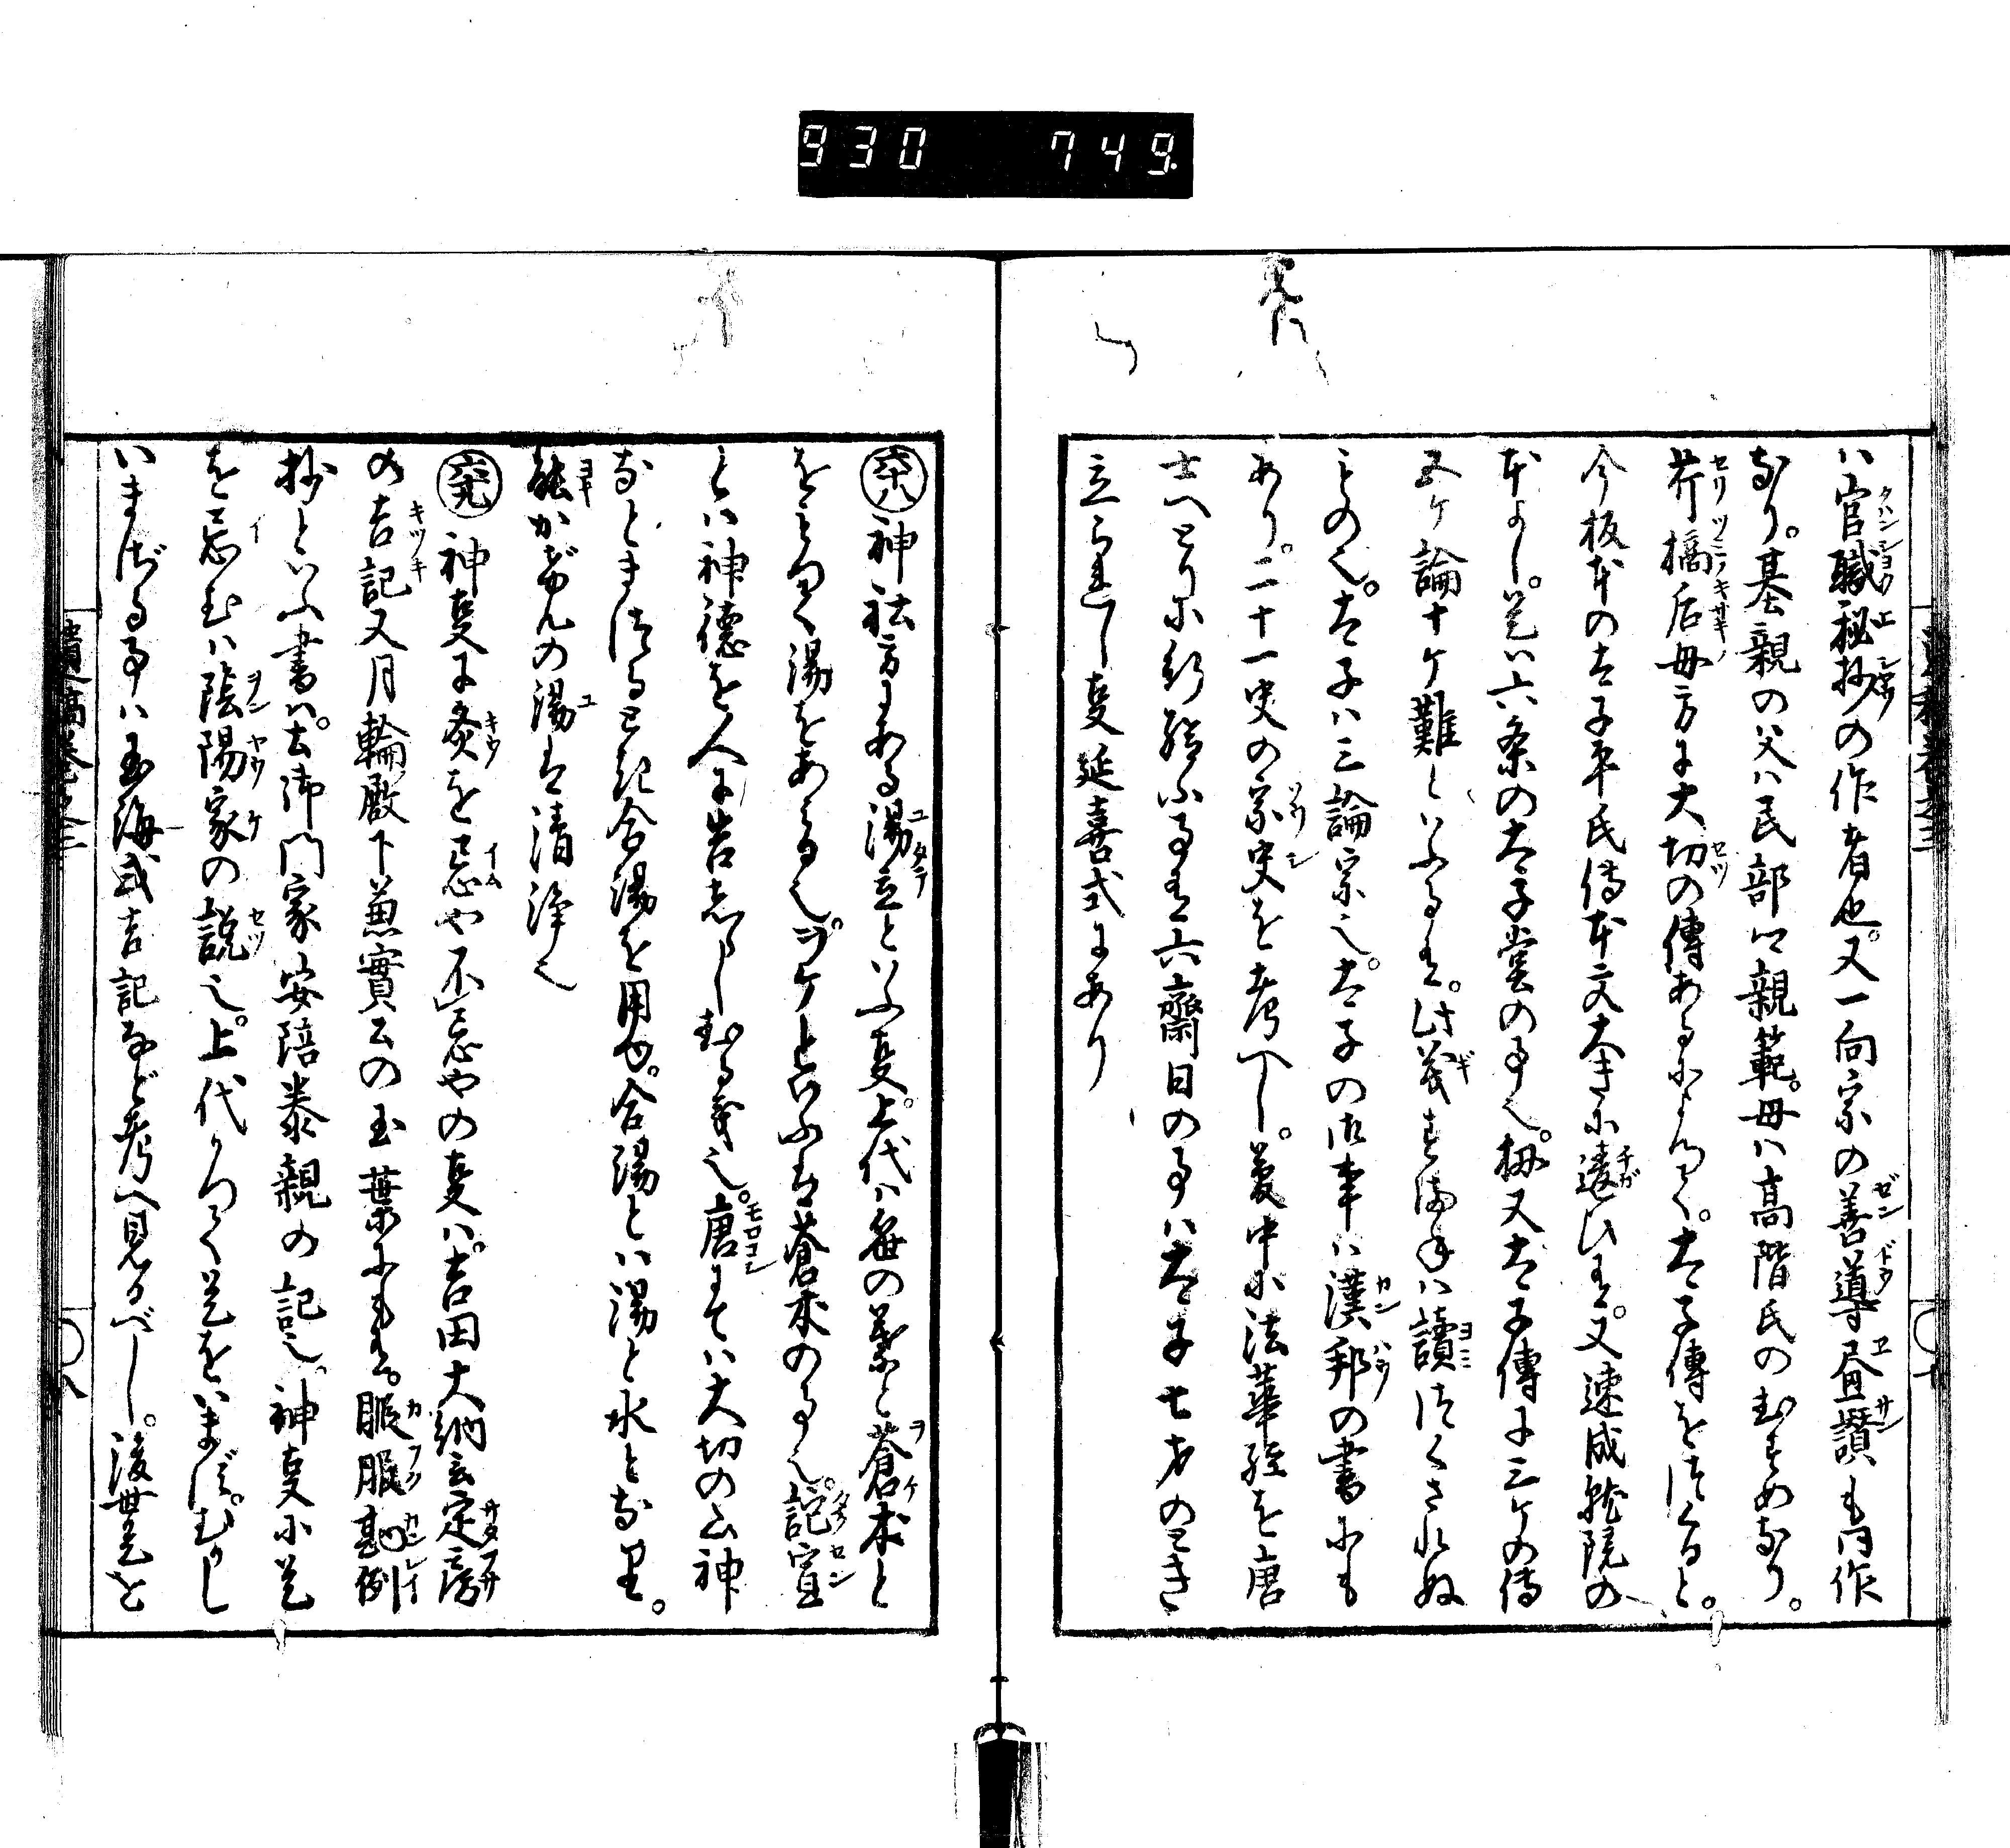 930 749
ハ官職秘抄の作者也。又一向宗の善導昼讃も同作
なり。基親の父ハ民部卿親範。母ハ高階氏のむすめなり。
芹摘后母方に大切の傳あるによつて。太子傳をつくると。
今板本の太子平氏傳本文大きに違ひす。又速成就院の
本よし。是ハ六条の太子堂の事也。扨又太子傳に三ケの傳
五ケ論十ケ難といふあり。此義すまねハ讀つくされぬ
ものと。太子ハ三論宗也。太子の御事ハ漢邦の書にも
あり。二十一史の宗史を考へし。夢中に法華経を唐
士へとりに行給ふ事も六齋日の事ハ太子七才のとき
立られし事延喜式にあり
六十八 神社方にある湯立といふ事。上代ハ笹の葉と蒼朮と
をミつけて湯をあぐる也。ヲケと云ふは蒼朮の事也。託宣
とハ神徳を人に告しらしむる義也。唐にてハ大切の山神
などまつるとき合湯を用ゆ。合湯とハ湯と水となり。
能かげんの湯は清浄也
六十九 神事に灸を忌や不忌やの事ハ。吉田大納言定房
の吉記又月輪殿下兼實公の玉葉にもあり。暇服勘例
抄といふ書ハ。土御門家安陪泰親の記也。神事に是
を忌むハ陰陽家の説也。上代かつて是をいまず。むかし
いまざる事ハ玉海或吉記など考へ見るべし。後世是を
遺稿巻之三
八